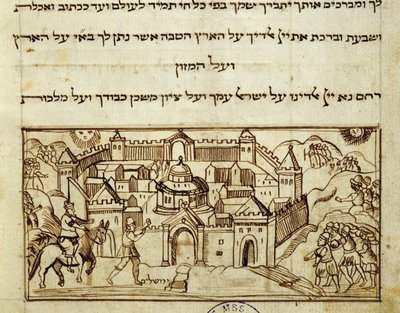 לך ומברכים אותך יתברך שמך בפי כל חי תמיד לעולם ועד ככתוב ואכלת
ושבעת וברכת את יי אלדיך על הארץ הטבה אשר נתן לך באי על הארץ
ועל המזון
רחם נא יי אלדינו על ישראל עמך ועל ציון משכן כבודך ועל מלכות
ירושלים
MSS